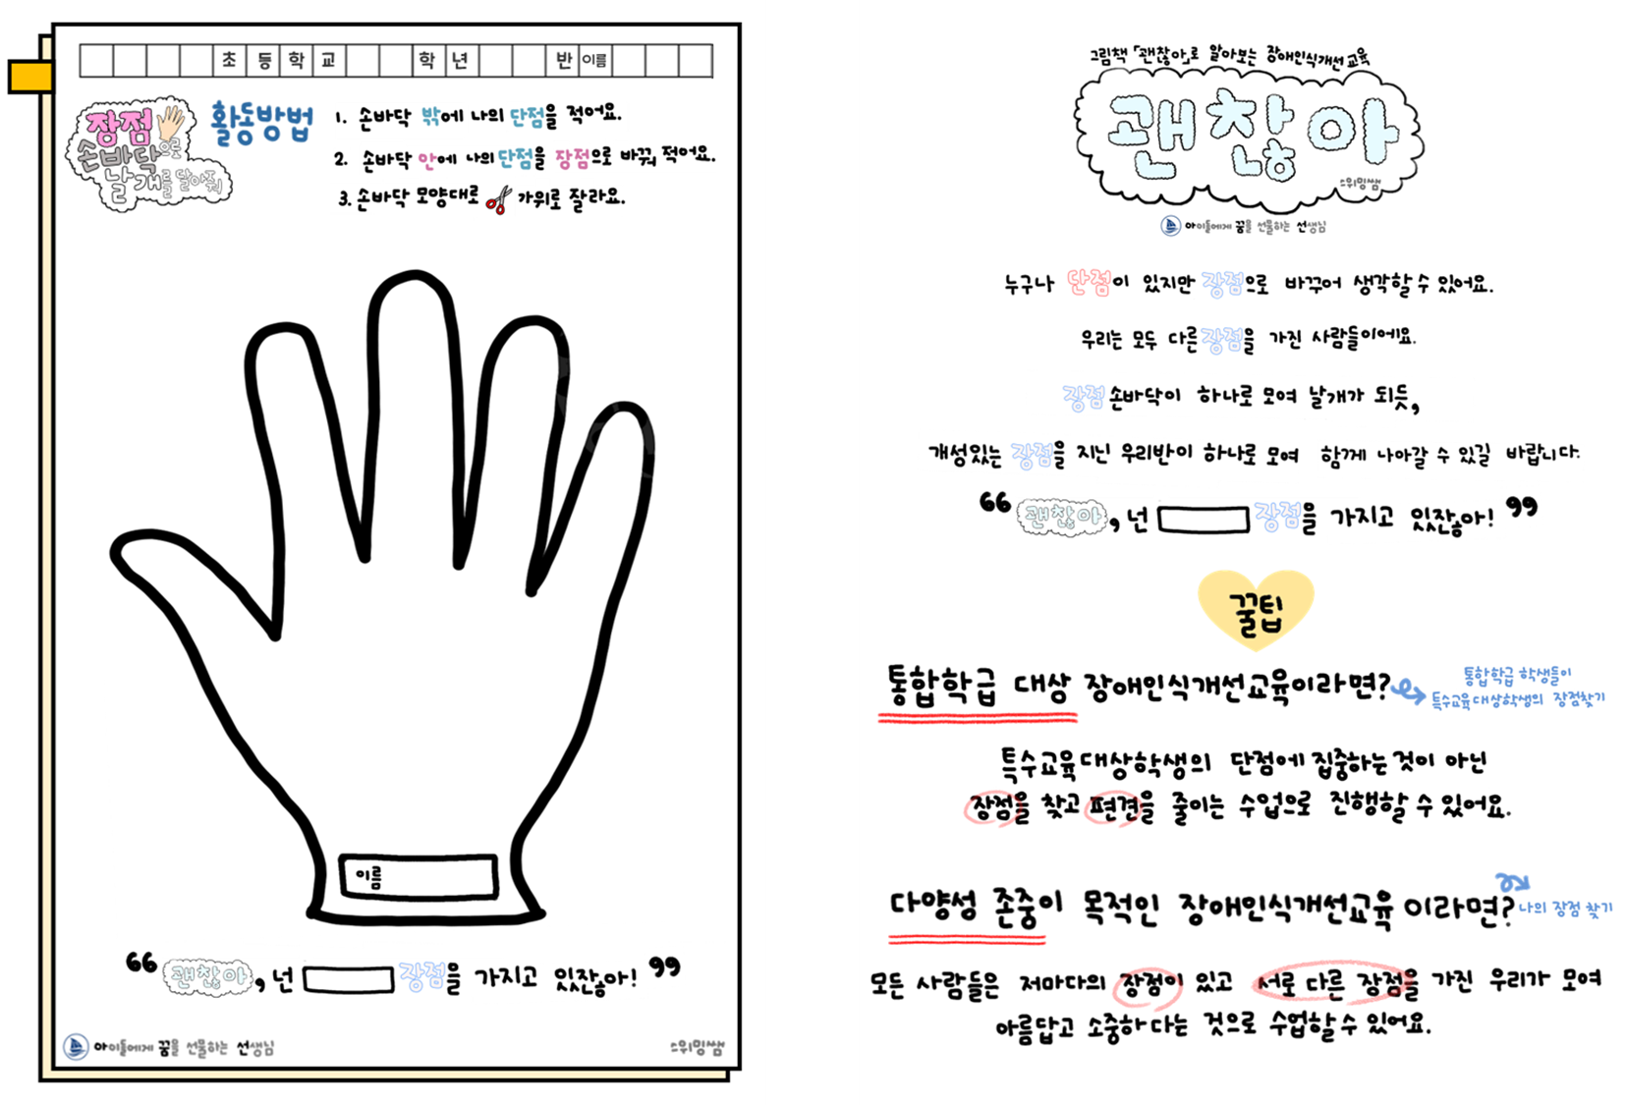 초등학교 학년 반 이름
장점
손바닥으로
날개를 달아줘
활동방법
1. 손바닥 밖에 나의 단점을 적어요.
2. 손바닥 안에 나의 단점을 장점으로 바꿔 적어요.
3. 손바닥 모양대로 가위로 잘라요.
이름
“ 괜찮아, 넌 장점을 가지고 있잖아! ”
아이들에게 꿈을 선물하는 선생님
스위밍쌤
그림책 「괜찮아」로 알아보는 장애인식개선교육
괜찮아
스위밍쌤
아이들에게 꿈을 선물하는 선생님
누구나 단점이 있지만 장점으로 바꾸어 생각할 수 있어요.
우리는 모두 다른 장점을 가진 사람들이에요.
장점 손바닥이 하나로 모여 날개가 되듯,
개성있는 장점을 지닌 우리반이 하나로 모여 함께 나아갈 수 있길 바랍니다.
“ 괜찮아, 넌 장점을 가지고 있잖아! ”
꿀팁
통합학급 대상 장애인식개선교육이라면?
통합학급 학생들이
특수교육대상학생의 장점찾기
특수교육대상학생의 단점에 집중하는 것이 아닌
장점을 찾고 편견을 줄이는 수업으로 진행할 수 있어요.
다양성 존중이 목적인 장애인식개선교육이라면?
나의 장점 찾기
모든 사람들은 저마다의 장점이 있고 서로 다른 장점을 가진 우리가 모여
아름답고 소중하다는 것으로 수업할 수 있어요.